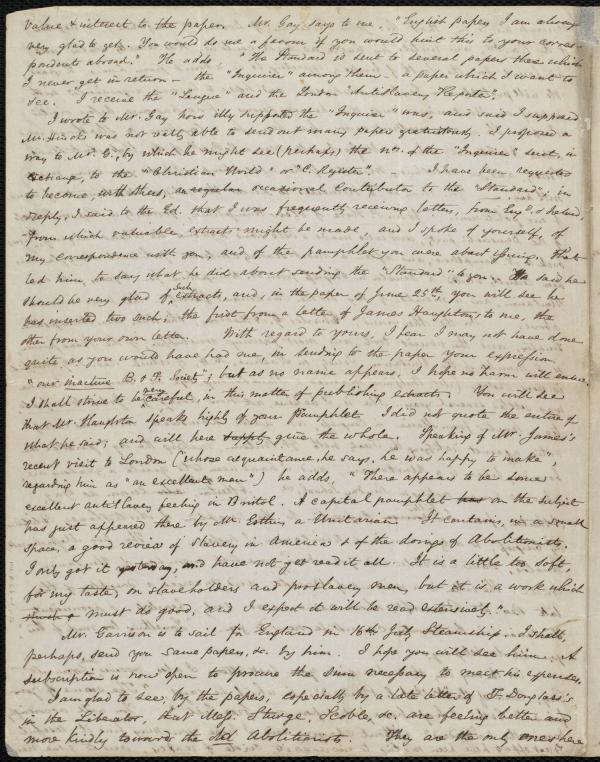 value & interest to the paper. Mr. Gay says to me, "English papers I am always
very glad to get. You would do me a favor if you would hint this to your corres-
pondents abroad." He adds, "The Standard is sent to several papers there which
I never get in return – the "Inquirer" among them – a paper which I want to
see. I receive the "League" and the London "Antislavery Reporter".
I wrote to Mr. Gay how illy supported the "Inquirer" was, and said I supposed
Mr. Hincks was not well able to send out many papers gratuitously. I proposed a
way to Mr. G., by which he might see (perhaps) the nos. of the "Inquirer" sent, in
exchange, to the "Christian World" or "C. Register". – I have been requested
to become, an occasional Contributor to the "Standard"; in
reply, I said to the Ed. that I was frequently receiving letters, from Eng. & Ireland,
from which valuable extracts might be made, and I spoke of yourself, of
my correspondence with you, and of the pamphlet you were about issuing. That
led him to say what he did about sending the "Standard" to you. He said he
should be very glad of such extracts, and, in the paper of June 25th, you will see he
has inserted two such; the first from a letter of James Haughton, to me, the
other from your own letter. With regard to yours, I fear I may not have done
quite as you would have had me, in sending to the paper your expression
"our inactive B. & F. Society"; but as no name appears, I hope no harm will ensue.
I shall strive to be very careful, in this matter of publishing extracts. You will see
that Mr. Haughton speaks highly of your Pamphlet I did not quote the entire of
what he said; and will here supply give the whole. Speaking of Mr. James's
recent visit to London ("whose acquaintance, he says, he was happy to make",
regarding him as "an excellent man") he adds, "There appears to be some
excellent antislavery feeling in Bristol. A capital pamphlet has on the subject
has just appeared there by Mr. Estlin, a Unitarian. It contains, in a small
space, a good review of Slavery in America & of the doings of Abolitionists.
I only got it yesterday, and have not yet read it all. It is a little too soft,
for my taste, on slaveholders and proslavery men, but it is a work which
must do good, and I expect it will be read extensively."
Mr. Garrison is to sail for England in 16th July Steamship. I shall,
perhaps, send you some papers, &c. by him. I hope you will see him. A
subscription is now open to procure the sum necessary to meet his expenses.
I am glad to see, by the papers, especially by a late letter of F. Douglass's
in the Liberator, that Mess. Sturge, Scoble, &c. are feeling better and
more kindly towards the old Abolitionists. They are the only ones here